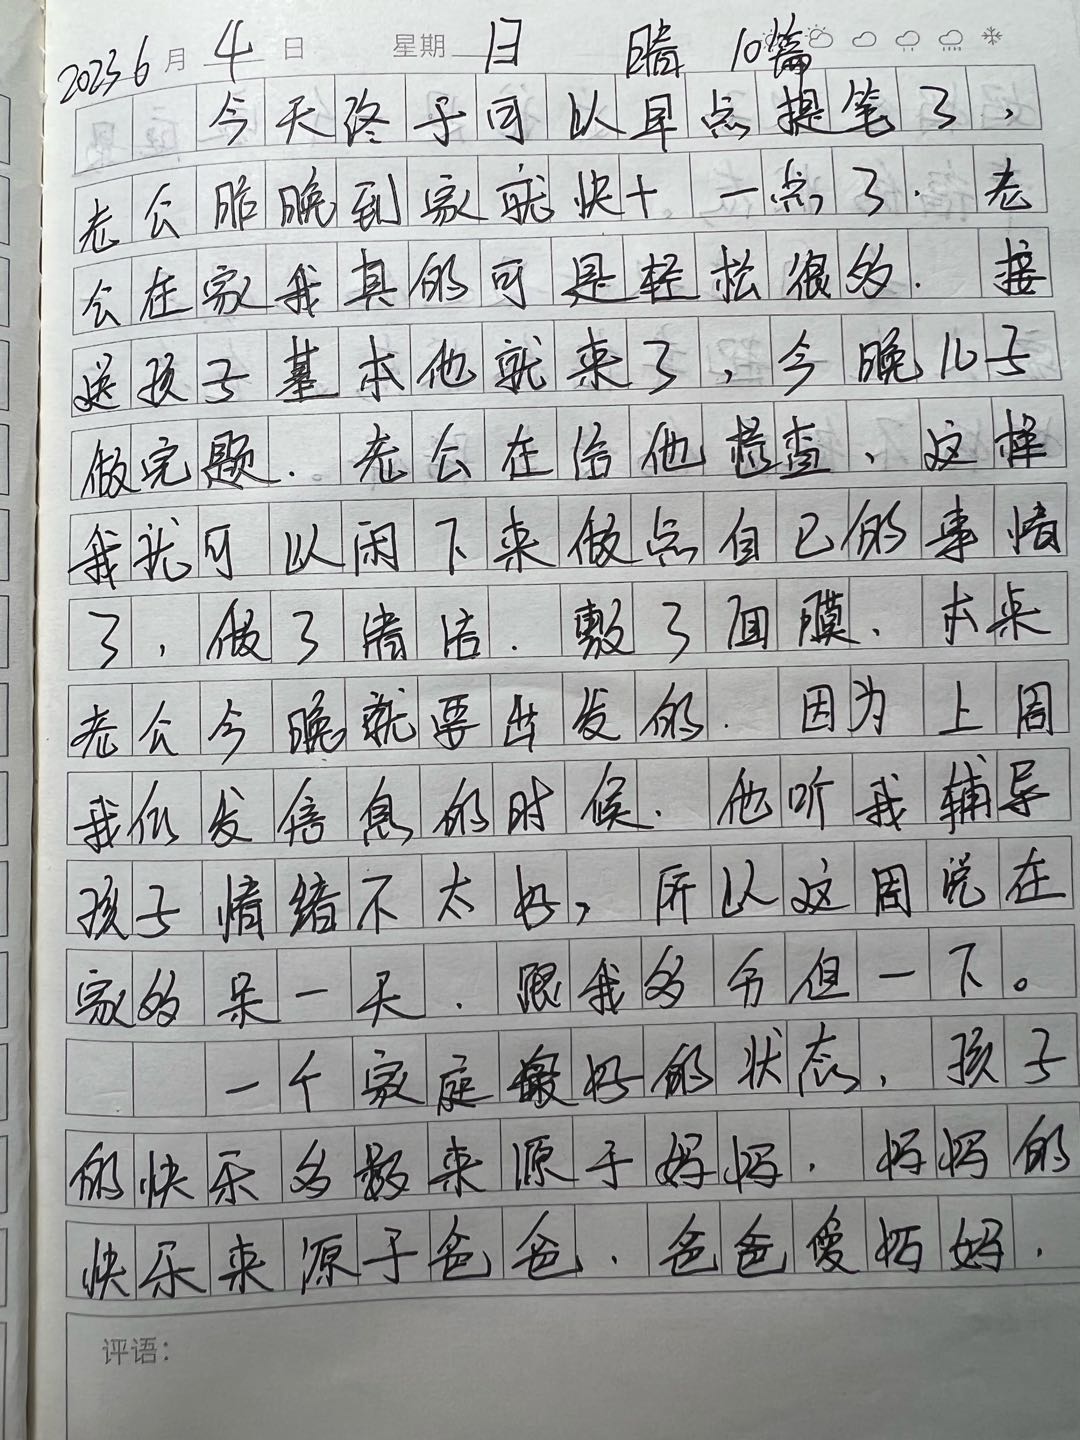 2023 6月4日 星期日 晴 10篇
今天终于可以早点提笔了，
老公昨晚到家就快十一点了.老
公在家我真的可是轻松很多.接
送孩子基本他就来了，今晚儿子
做完题.老公在给他检查、这样
我就可以闲下来做点自己的事情
了，做了清洁.敷了面膜、本来
老公今晚就要出发的.因为上周
我们发信息的时候.他听我辅导
孩子情绪不太好，所以这周说在
家多呆一天.跟我多分担一下。
一个家庭最好的状态，孩子
的快乐多数来源于妈妈.妈妈的
快乐来源于爸爸.爸爸爱妈妈.
评语：